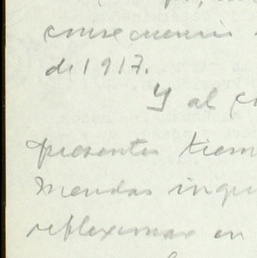 consecuencia
de 1917.
Y al
presentes tiem
mendas inqui
reflexionar en